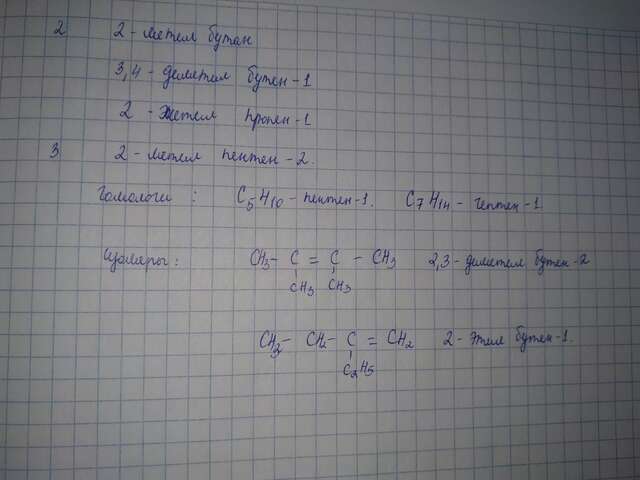 2 2-метил бутан
3,4-диметил бутен-1
2-этил пропен-1
3 2-метил пентен-2.
Гомологи: C5H10-пентен-1. C7H14-гептен-1
Изомеры: CH3-C=C-CH3 2,3-диметил бутен-2
CH3 CH3
CH3-CH-C=CH2 2-этил бутен-1.
C2H5